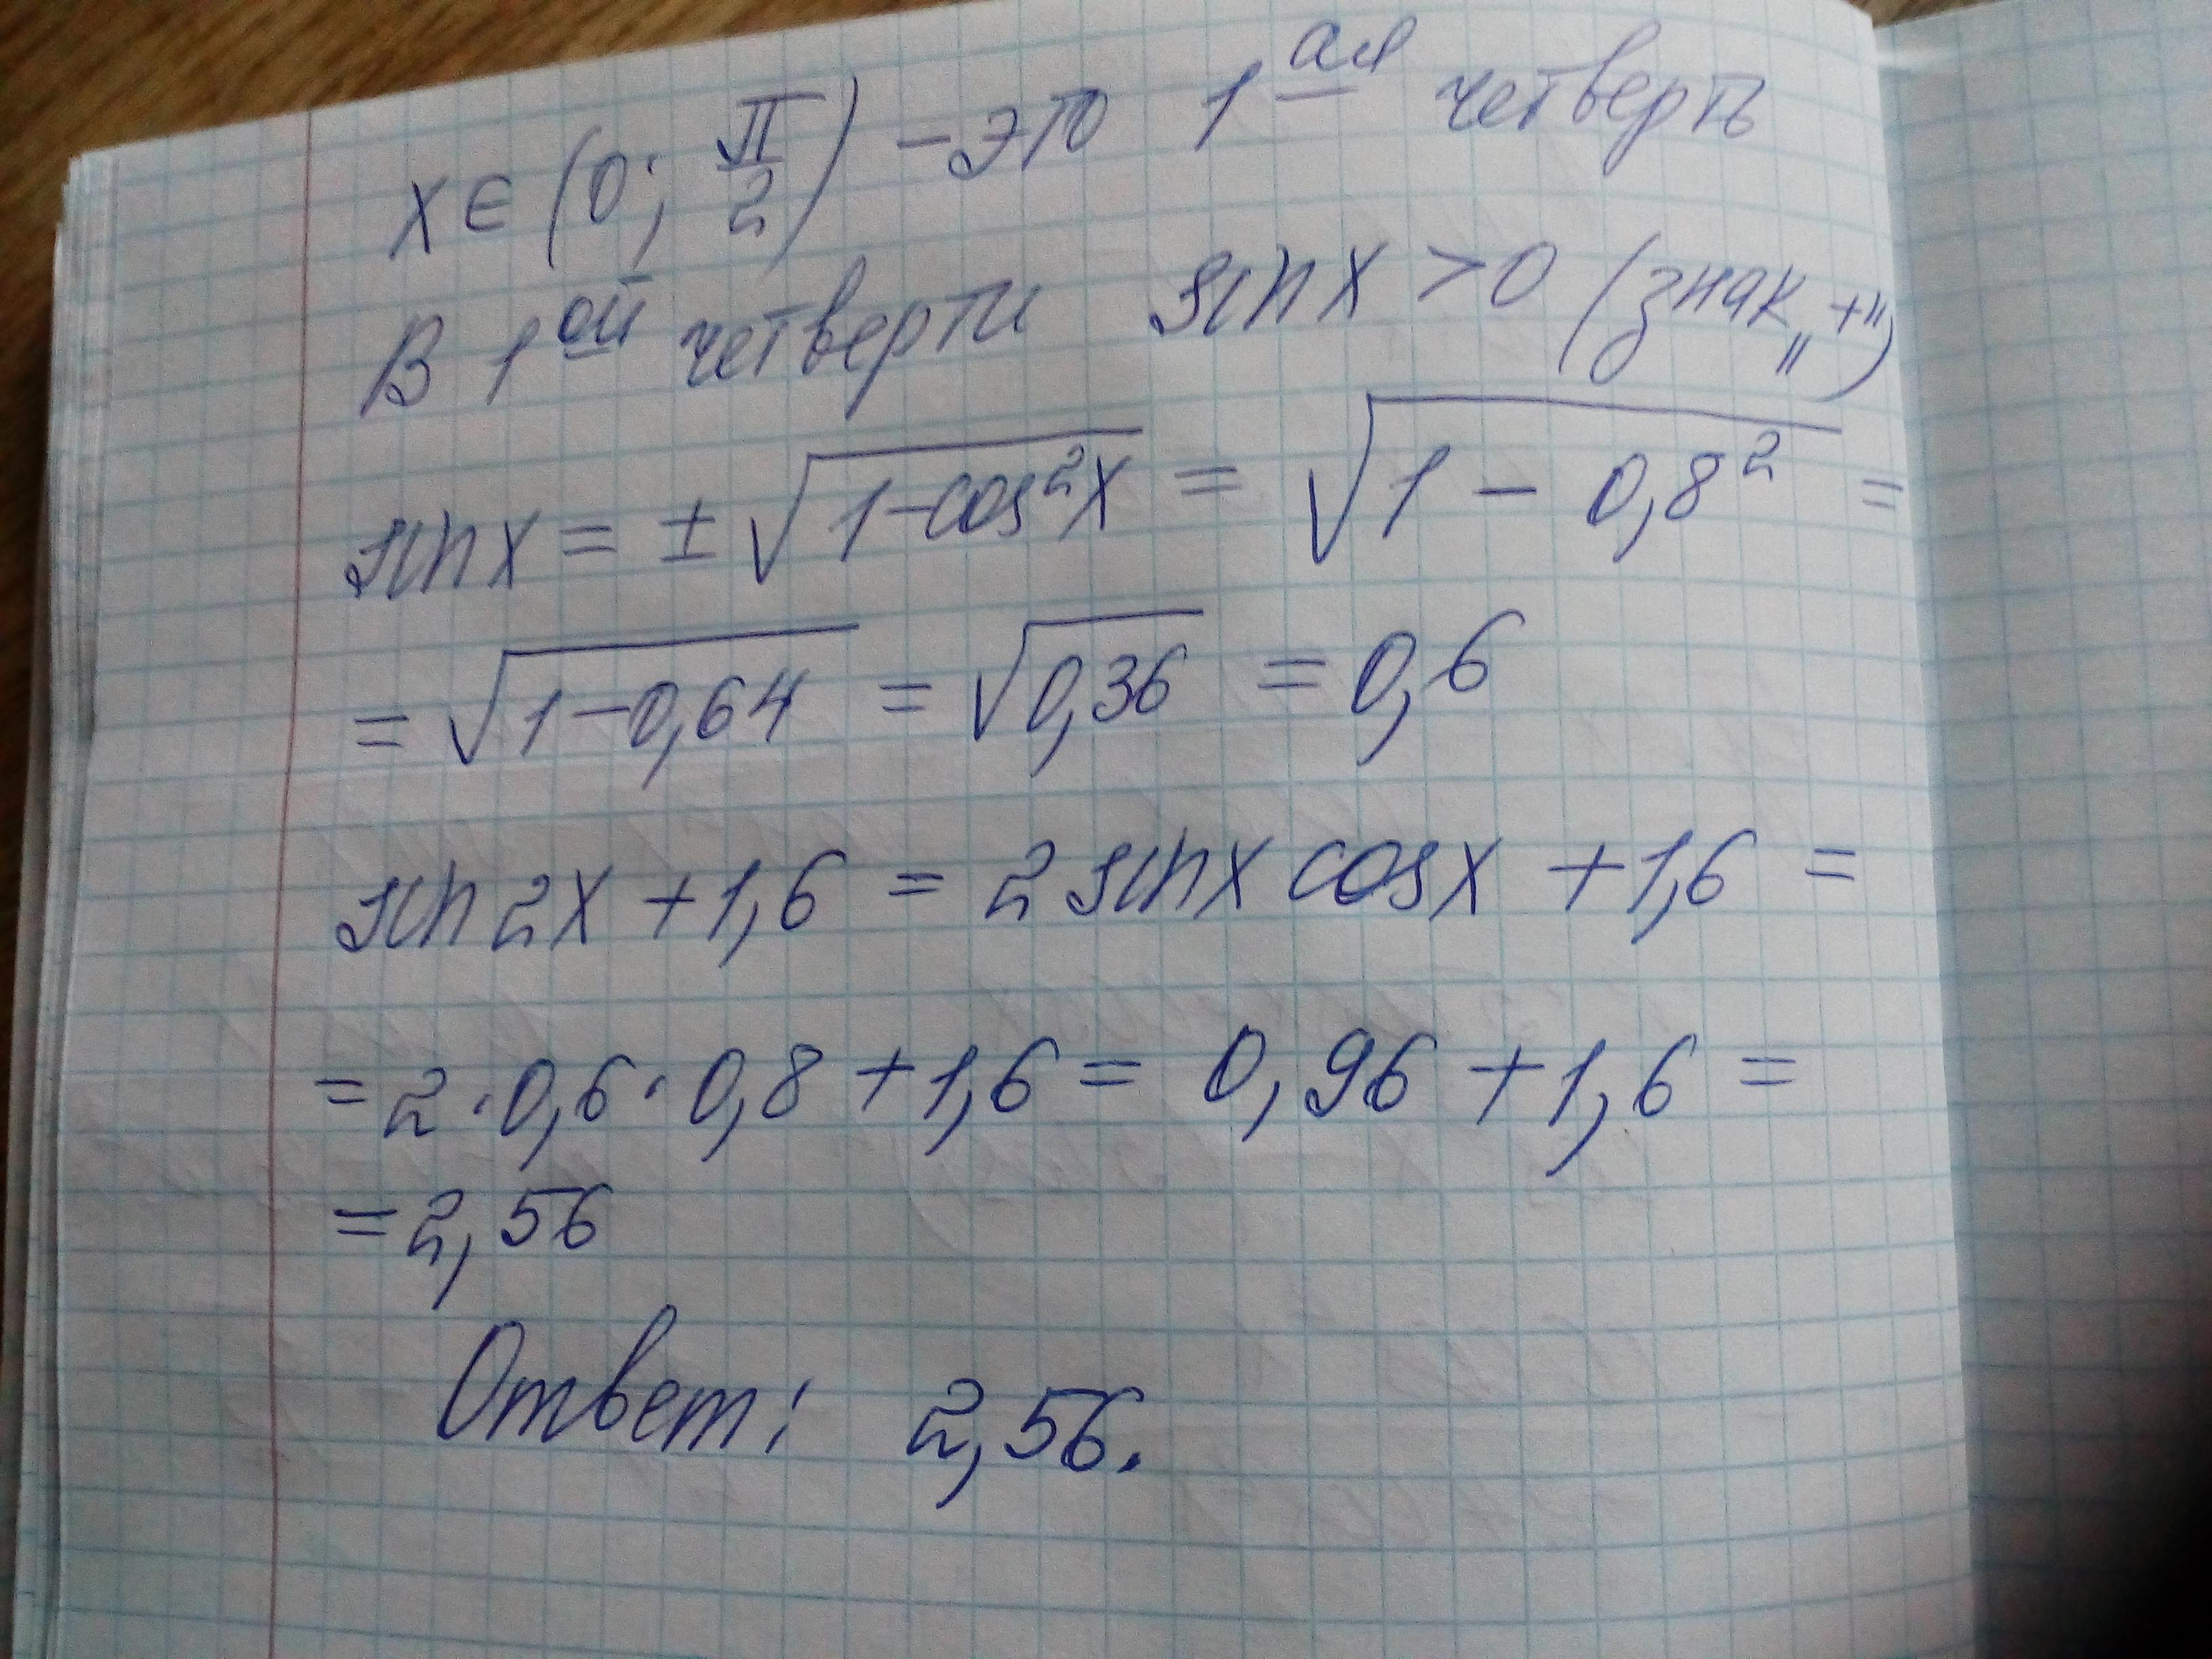 x ∈ (0; π/2) - это 1ая четверть
В 1ой четверти sin x > 0 (знак „+")
sin x = ± √(1-cos²x) = √(1 - 0,8²) =
= √(1-0,64) = √(0,36) = 0,6
sin 2x + 1,6 = 2 sin x cos x + 1,6 =
= 2 · 0,6 · 0,8 + 1,6 = 0,96 + 1,6 =
= 2,56
Ответ: 2,56.